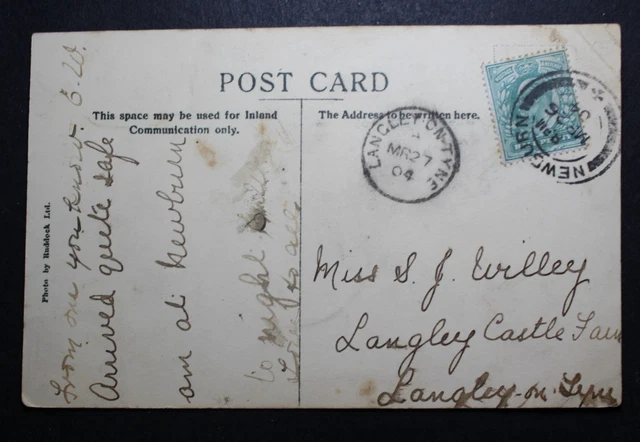 POST CARD
This space may be used for Inland
Communication only.
The Address to be written here.
LANGLEY-ON-TYNE
MR 27
04
NEWBURN
Photo by Ruddock Ltd.
from one you know. E. W.
Arrived quite safe
am at Newburn
to night
Love to all
Miss S. J. Willey
Langley Castle Farm
Langley-on-Tyne